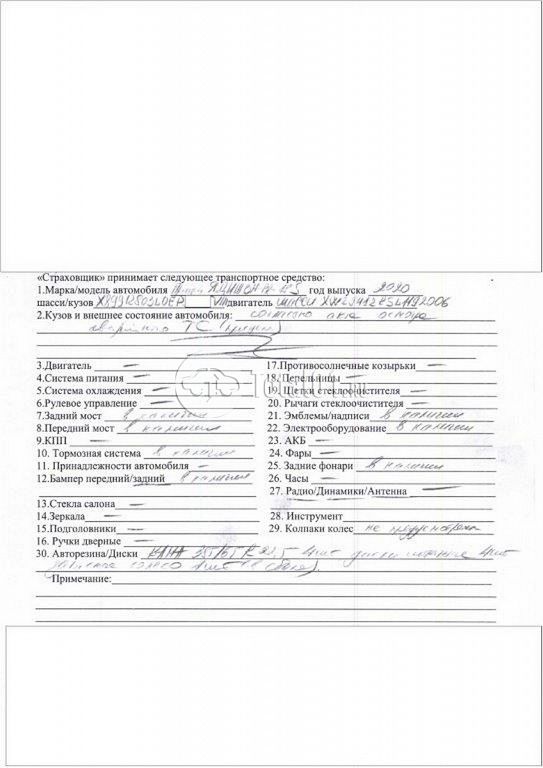 «Страховщик» принимает следующее транспортное средство:
1.Марка/модель автомобиля год выпуска 2020
шасси/кузов двигатель шасси
2.Кузов и внешнее состояние автомобиля: согласно акта осмотра
аварийного ТС
3.Двигатель — 17.Противосолнечные козырьки —
4.Система питания — 18. Пепельницы —
5.Система охлаждения — 19. Щетки стеклоочистителя —
6.Рулевое управление — 20. Рычаги стеклоочистителя —
7.Задний мост в наличии 21. Эмблемы/надписи в наличии
8.Передний мост в наличии 22. Электрооборудование в наличии
9.КПП — 23. АКБ —
10. Тормозная система в наличии 24. Фары —
11. Принадлежности автомобиля — 25. Задние фонари в наличии
12.Бампер передний/задний в наличии 26. Часы —
27. Радио/Динамики/Антенна —
13.Стекла салона —
14.Зеркала — 28. Инструмент —
15.Подголовники — 29. Колпаки колес не предусмотрены
16. Ручки дверные —
30. Авторезина/Диски
Примечание: